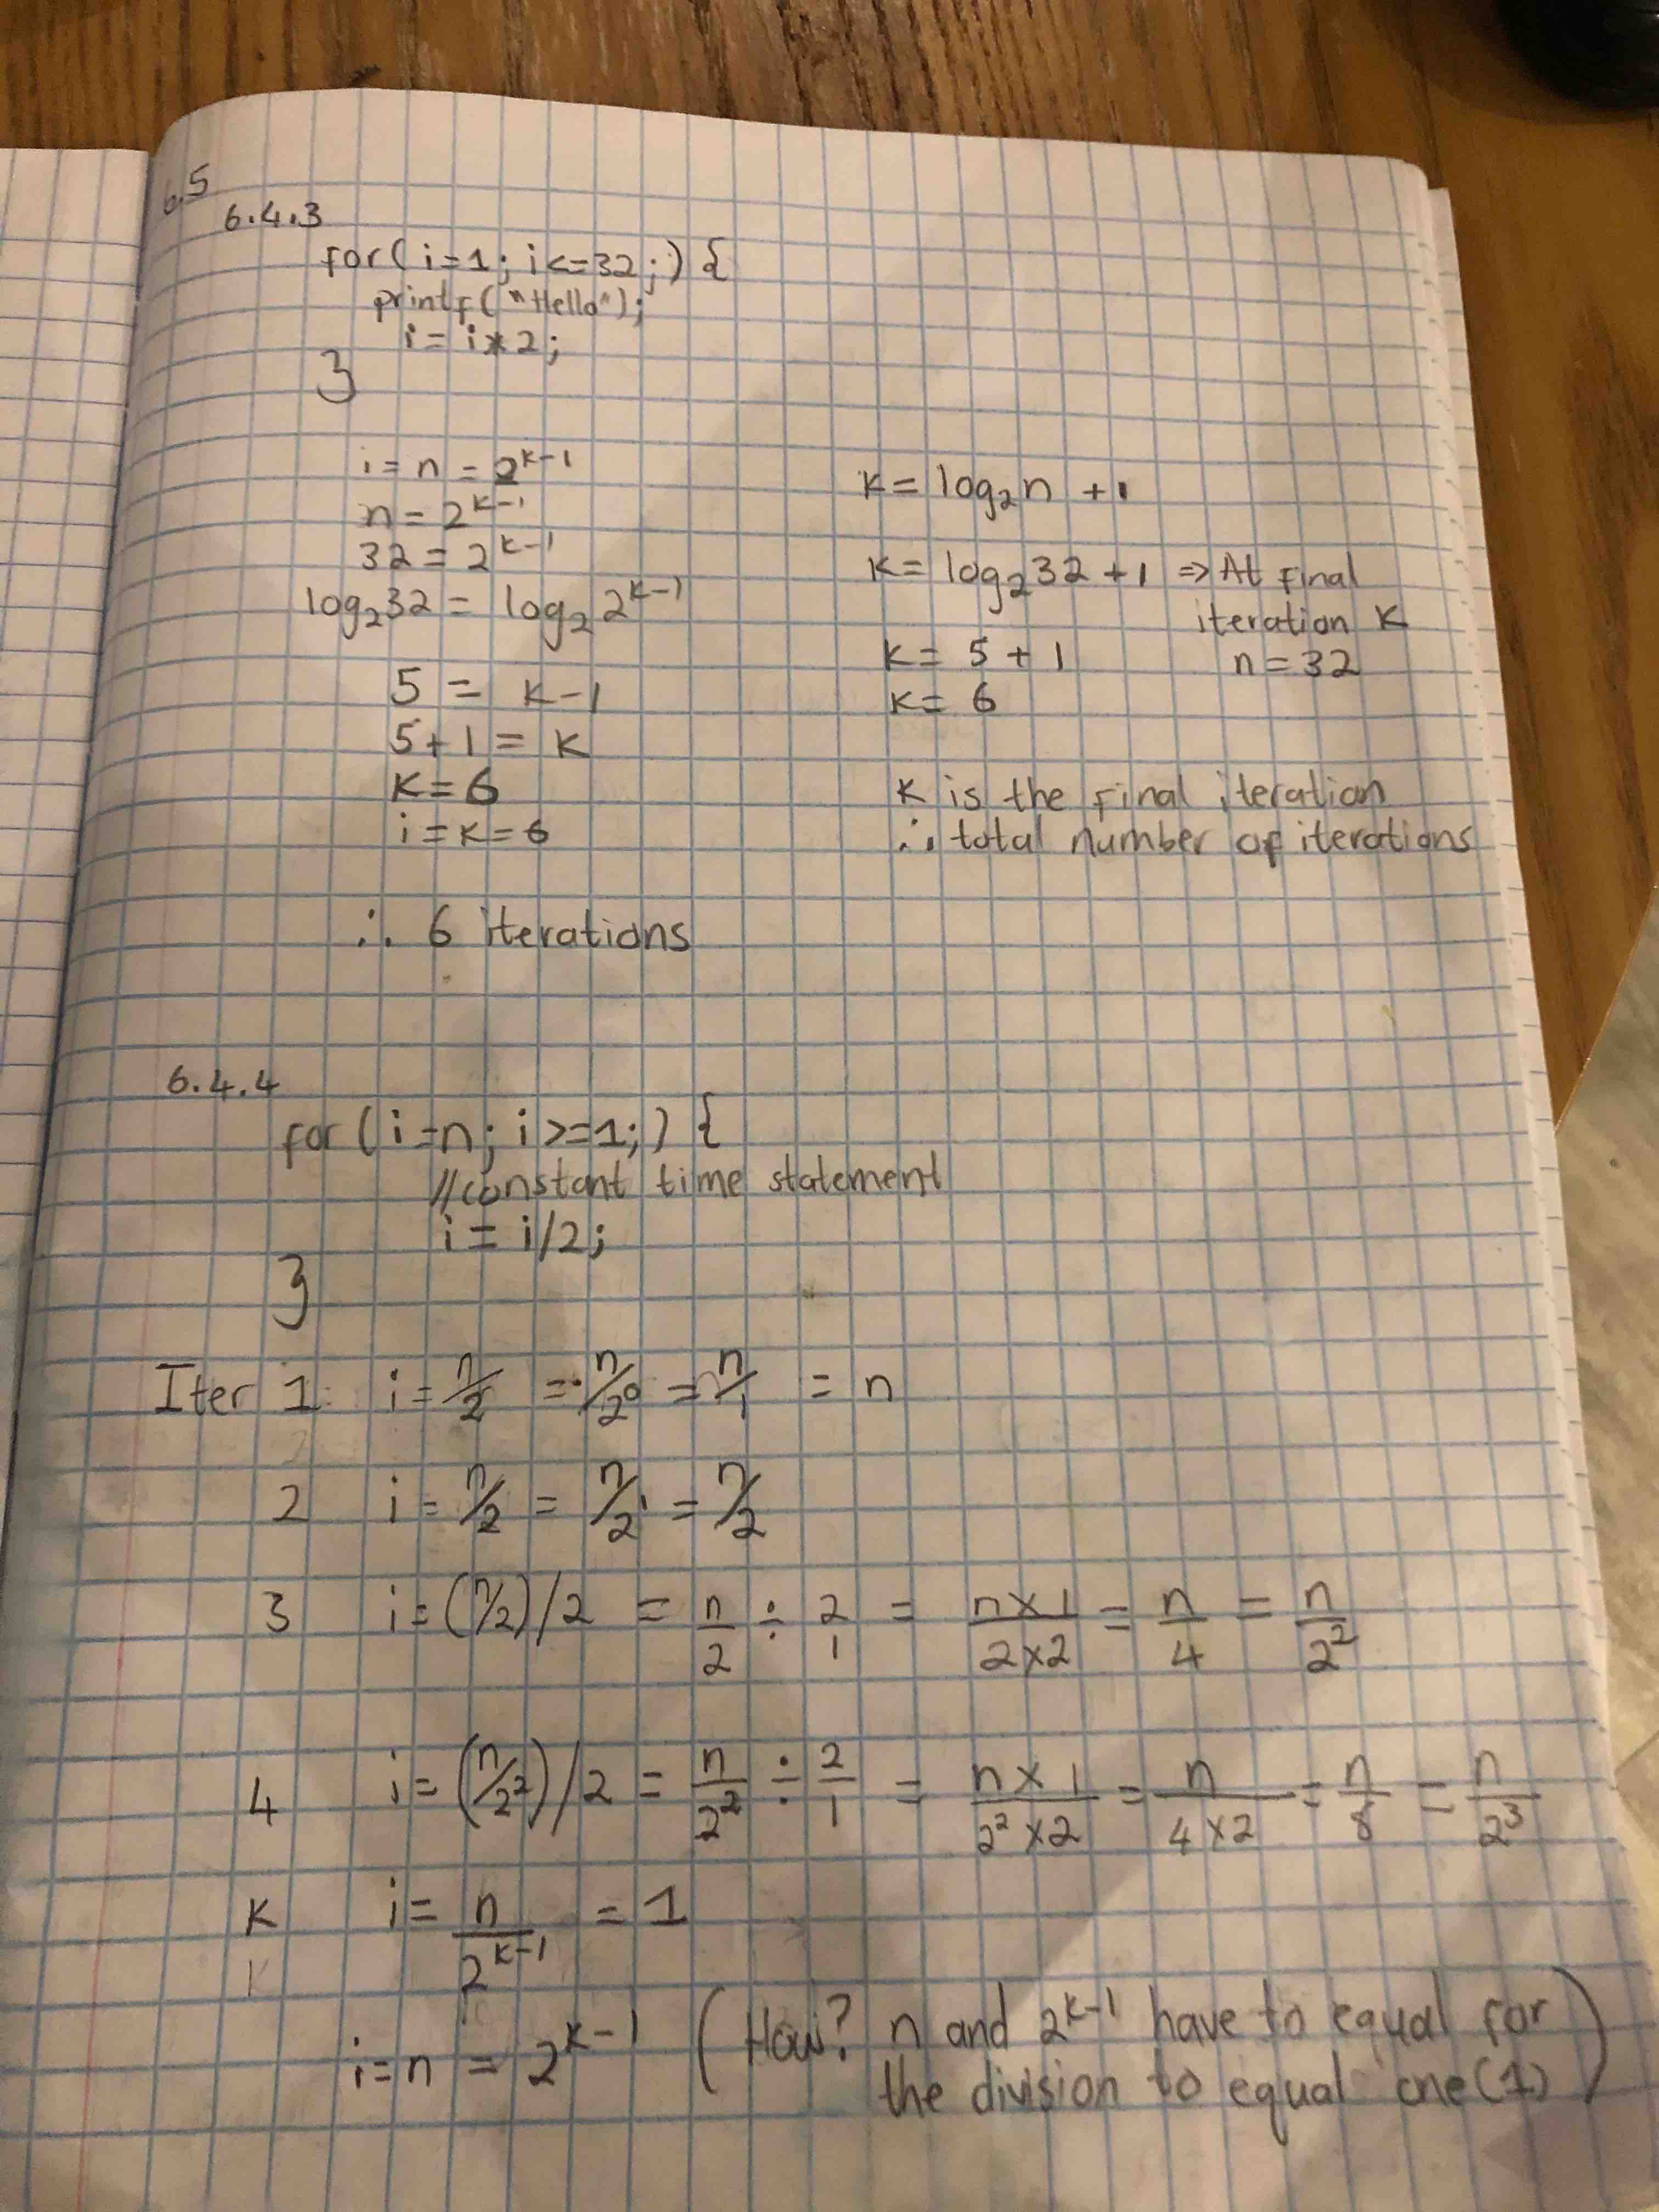 6.5
6.4.3
for(i=1; i<=32;) {
printf("Hello");
i = i*2;
}
i = n = 2^{k-1}
n = 2^{k-1}
32 = 2^{k-1}
log₂32 = log₂2^{k-1}
5 = k-1
5+1 = k
k=6
i=k=6
∴ 6 iterations
k = log₂n +1
k = log₂32+1 => At final
iteration k
n=32
k= 5 + 1
k= 6
k is the final iteration
∴ total number of iterations
6.4.4
for(i=n; i>=1;) {
//constant time statement
i = i/2;
}
Iter 1 i = n/2 = n/2⁰ = n/1 = n
2 i = n/2 = n/2¹ = n/2
3 i = (n/2)/2 = n/2 ÷ 2/1 = n×1/2×2 = n/4 = n/2²
4 i = (n/2²)/2 = n/2² ÷ 2/1 = n×1/2²×2 = n/4×2 = n/8 = n/2³
k i = n/2^{k-1} = 1
i=n = 2^{k-1} (How? n and 2^{k-1} have to equal for
the division to equal one(1))